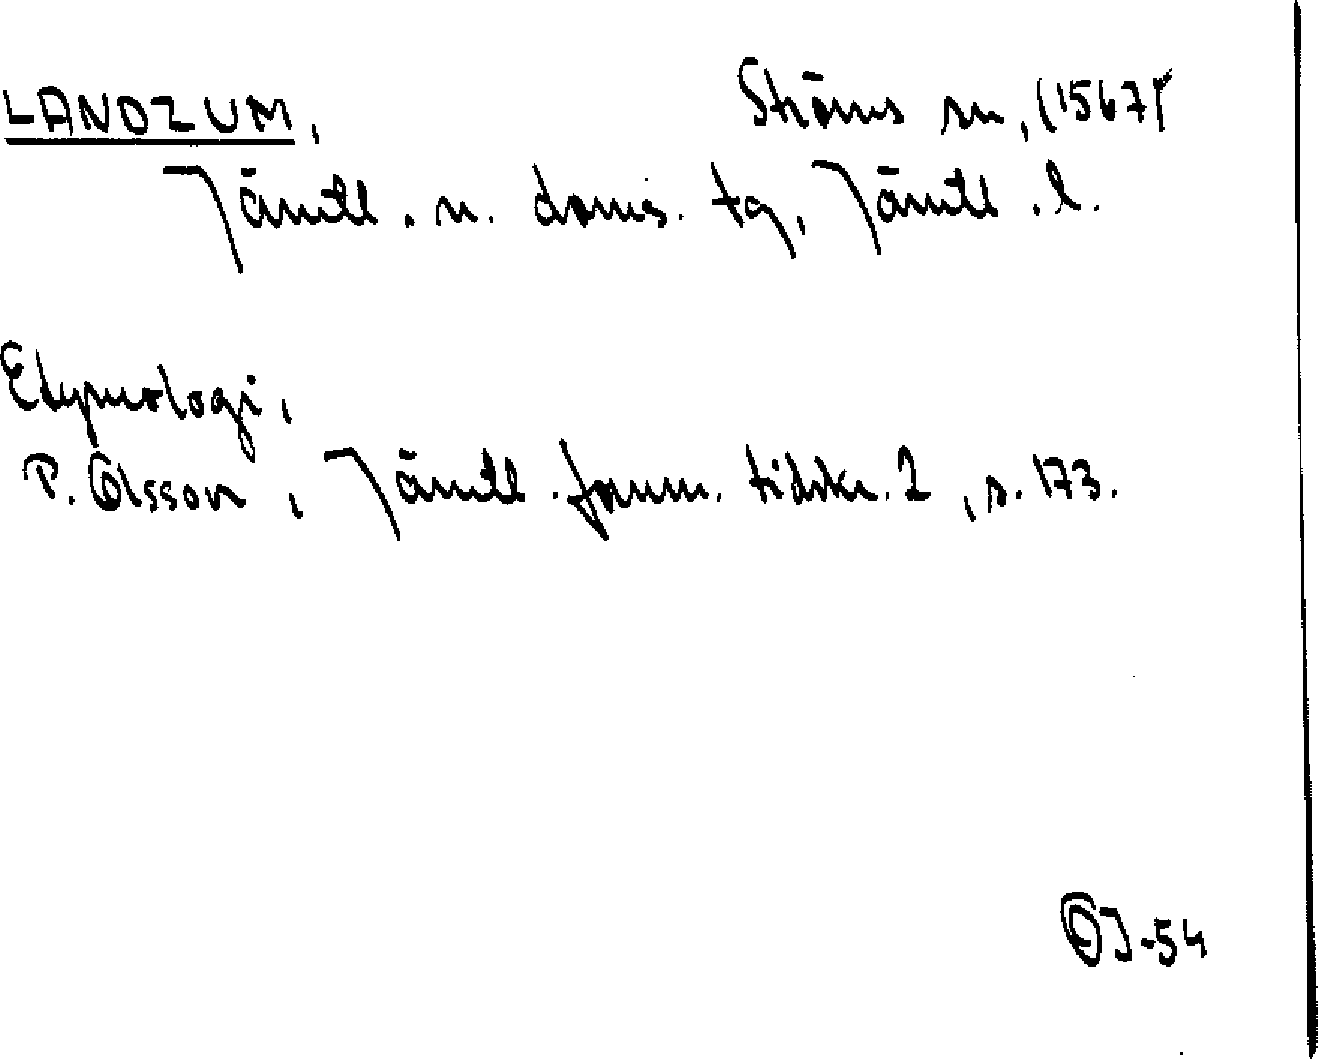 LANDZUM, Ströms sn, (1567)
Jämtl. n. doms. tg, Jämtl. l.
Etymologi,
P. Olsson, Jämtl. fornm. tidskr. 2, s. 173.
OJ-54